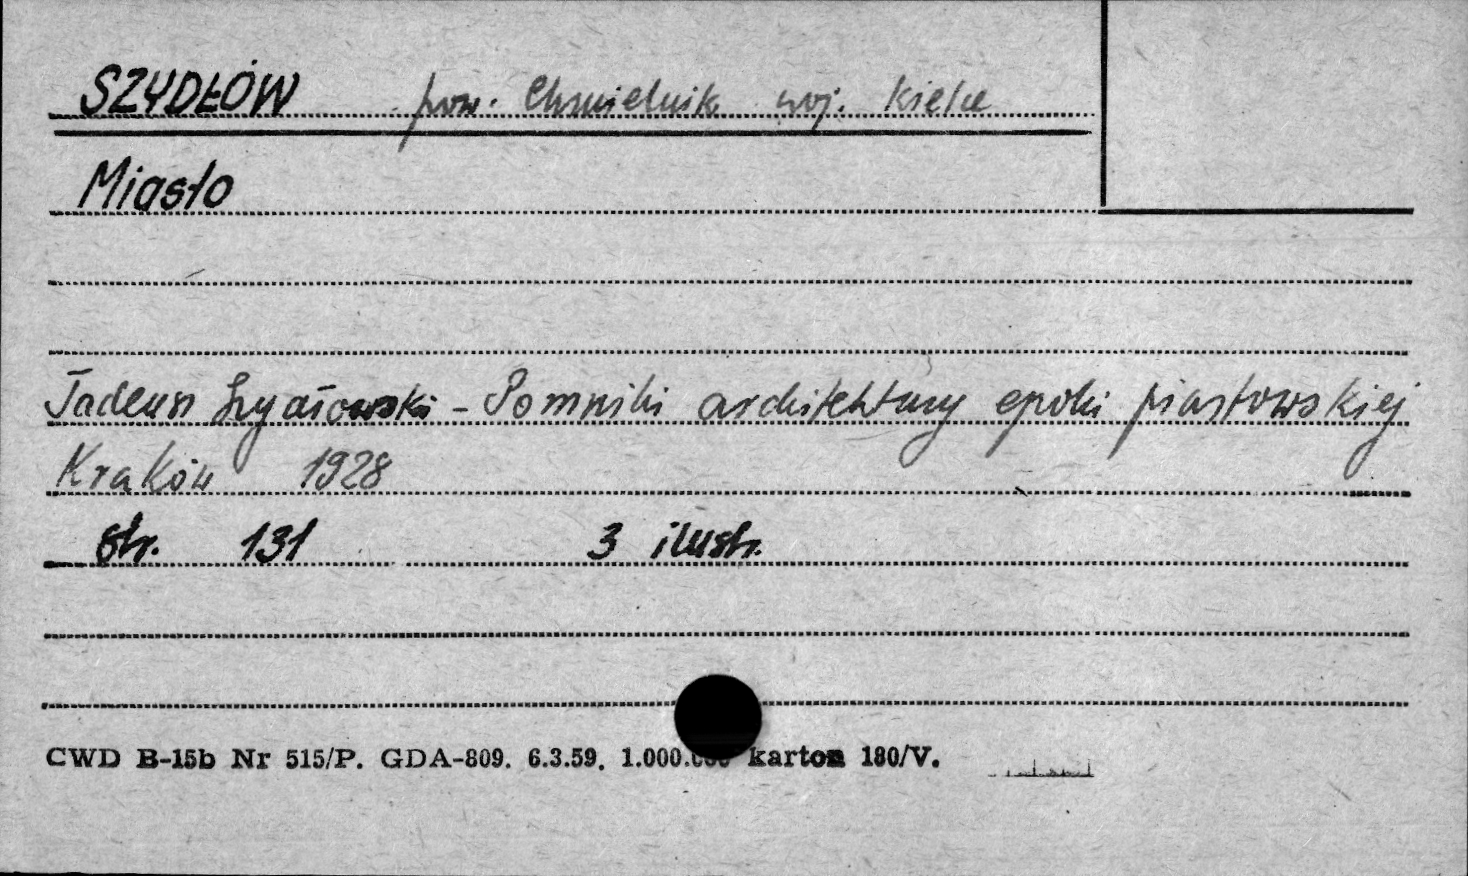 SZYDŁÓW pow. Chmielnik woj. Kielce
Miasto
Tadeusz Szydłowski - Pomniki architektury epoki piastowskiej
Kraków 1928
str. 131 3 ilustr.
CWD B-15b Nr 515/P. GDA-809. 6.3.59. 1.000.000 karton 180/V.